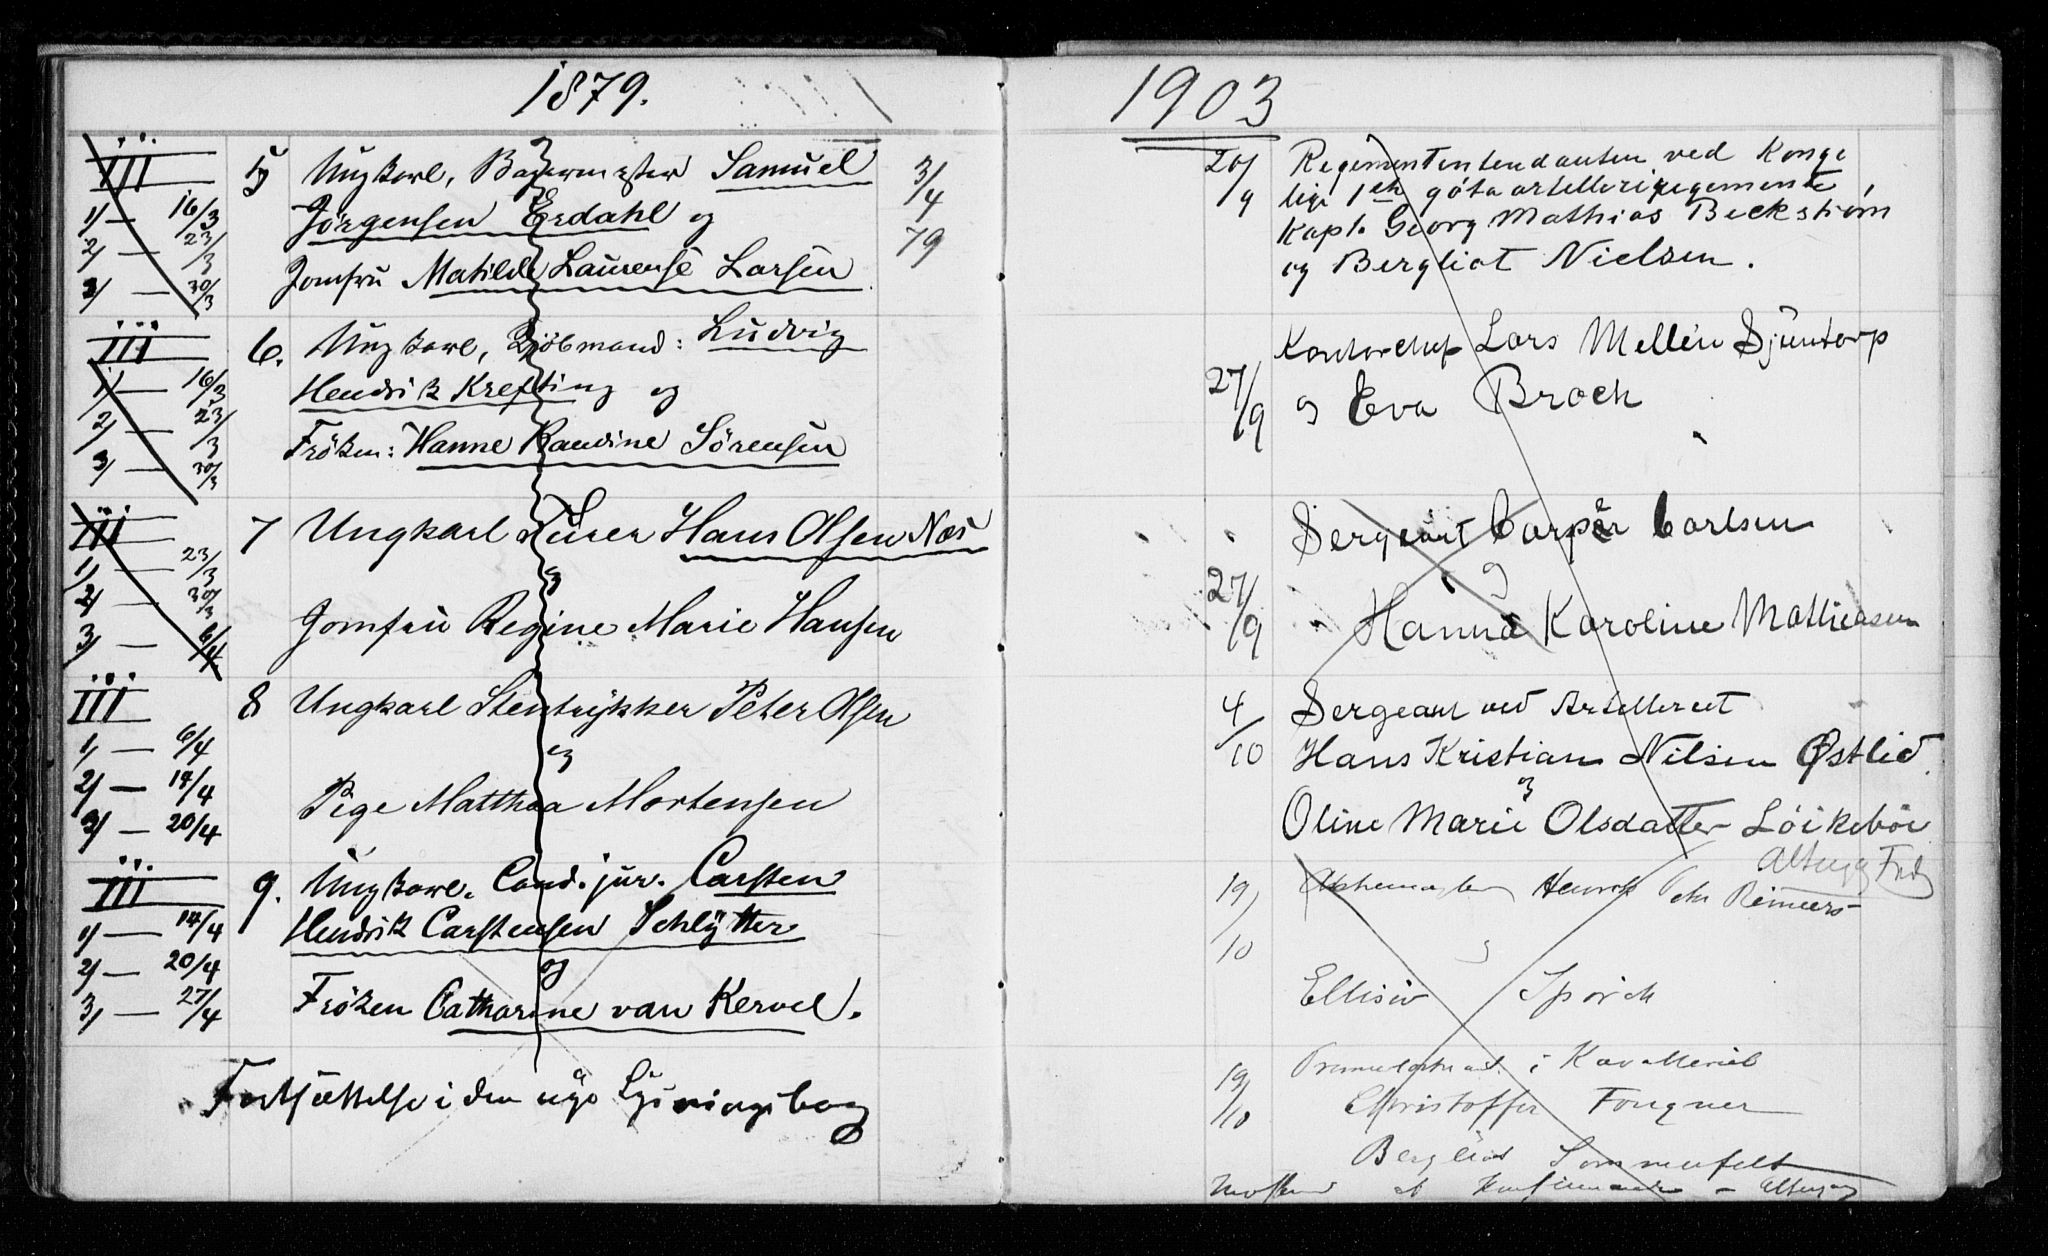 1879.
III
1/ — 16/3
2/ — 23/3
3/ — 30/3
5 Ungkarl, Bagermester Samuel 3/4 79
Jørgensen Erdahl og
Jomfru Matilde Laurense Larsen
III
1/ — 16/3
2/ — 23/3
3/ — 30/3
6. Ungkarl, Kjøbmand: Ludvig
Hendrik Krefting og
Frøken: Hanne Randine Sørensen
III
1/ — 23/3
2/ — 30/3
3/ — 6/4
7 Ungkarl Hans Olsen Næs
og
Jomfru Regine Marie Hansen
III
1/ — 6/4
2/ — 14/4
3/ — 20/4
8 Ungkarl Stentrykker Peter Olsen
og
Pige Matthea Mortensen
III
1/ — 14/4
2/ — 20/4
3/ — 27/4
9. Ungkarl. Cand. jur. Carsten
Hendrik Carstensen Schlytter
og
Frøken Catharine van Kervel.
Fortsættelse i den nye Lysningsbog
1903
20/9 Regimentintendanten ved Konge
lige 1ste göta artilleriregemente,
Kapt. Georg Mathias Beckström
og Bergliot Nielsen.
27/9 Kontorchef Lars Mellin Sjuntorp
og Eva Broch
27/9 Sergeant Casper Carlsen
og
Hanna Karoline Mathiasen
4/10 Sergeant ved Artilleriet
Hans Kristian Nilsen Østlid
og
Oline Marie Olsdatter Löikeböe
19/10 Henrik Reimers
Ellisiv
19/10 Premierløitnant i Kavalleriet
Christoffer Fougner
Bergliot Sommerfelt